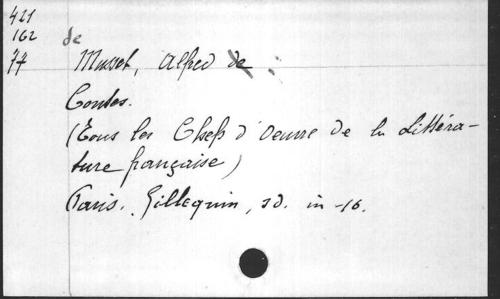 421
162
77
de
Musset, Alfred de
Contes.
(Tous les Chefs d'Oeuvre de la Littéra-
ture française)
Paris. Gillequin, sd. in-16.